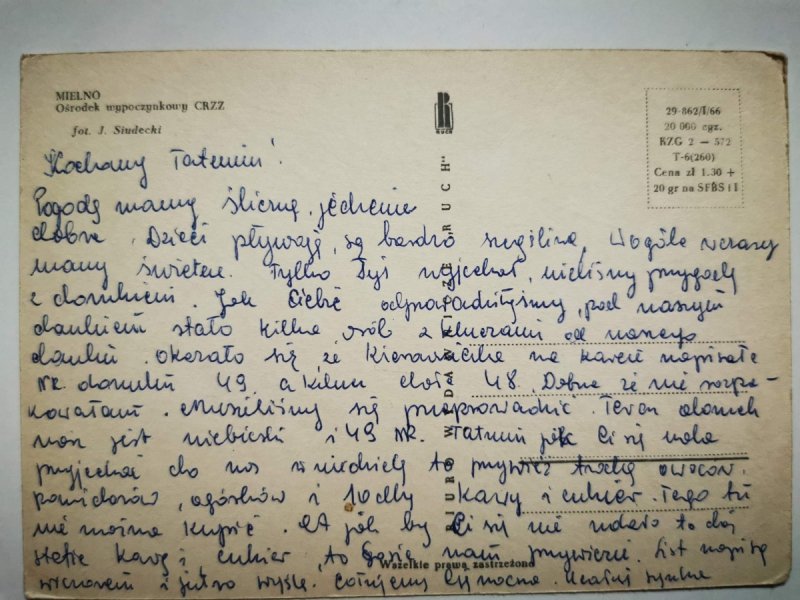 MIELNO
Ośrodek wypoczynkowy CRZZ
fot. J. Siudecki
RUCH
BIURO WYDAWNICZE „RUCH"
29-862/I/66
20 000 egz.
RZG 2 — 572
T-6(260)
Cena zł 1.30 +
20 gr na SFBS i I
Kochany Tatusiu!
Pogodę mamy śliczną, jedzenie
dobre. Dzieci pływają, są bardzo. Wogóle wczasy
mamy świetne. Tylko Tyś wyjechał, mieliśmy przygodę
z domkiem. Jak Ciebie odprowadziłyśmy, pod naszym
domkiem stało kilka osób z kluczami od naszego
domku. Okazało się że Kierowniczka na karcie napisała
nr. domku 49, a klucz dała 48. Dobrze że nie rozpa-
kowałam. Musieliśmy się przeprowadzić. Teraz domek
nasz jest niebieski i 49 nr. Tatusiu jak Ci się uda
przyjechać do nas w niedzielę to przywieź trochę owoców,
pomidorów, ogórków i 10 dkg kawy i cukier. Tego tu
nie można kupić. A jak by Ci się nie udało to daj
kawę i cukier, to nam przywiezie. List napiszę
wieczorem i jutro wyślę. Całujemy Cię mocno.
Wszelkie prawa zastrzeżone